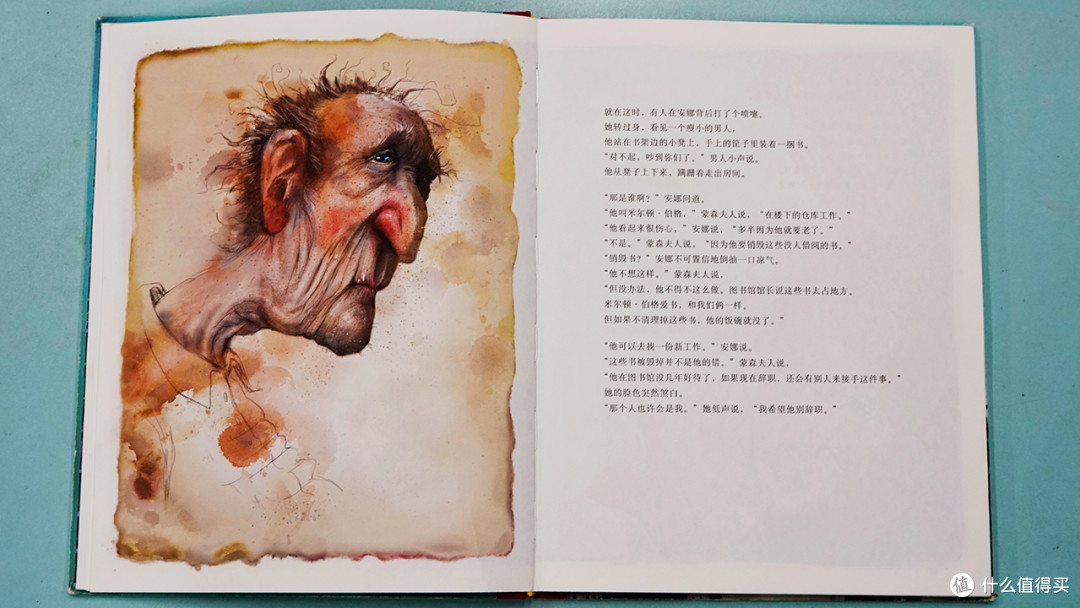 就在这时，有人在安娜背后打了个喷嚏。
她转过身，看见一个瘦小的男人，
他站在书架边的小凳上，手上的筐子里装着一捆书。
“对不起，吵到你们了。”男人小声说。
他从凳子上下来，蹒跚着走出房间。
“那是谁啊？”安娜问道。
“他叫米尔顿·伯格，”蒙森夫人说，“在楼下的仓库工作。”
“他看起来很伤心，”安娜说，“多半因为他就要老了。”
“不是。”蒙森夫人说，“因为他要销毁这些没人借阅的书。”
“销毁书？”安娜不可置信地倒抽一口凉气。
“他不想这样。”蒙森夫人说，
“但没办法，他不得不这么做。图书馆馆长说这些书太占地方。
米尔顿·伯格爱书，和我们俩一样。
但如果不清理掉这些书，他的饭碗就没了。”
“他可以去找一份新工作。”安娜说。
“这些书被毁掉并不是他的错。”蒙森夫人说，
“他在图书馆没几年好待了，如果现在辞职，还会有别人来接手这件事。”
她的脸色突然煞白。
“那个人也许会是我。”她低声说，“我希望他别辞职。”
值 什么值得买